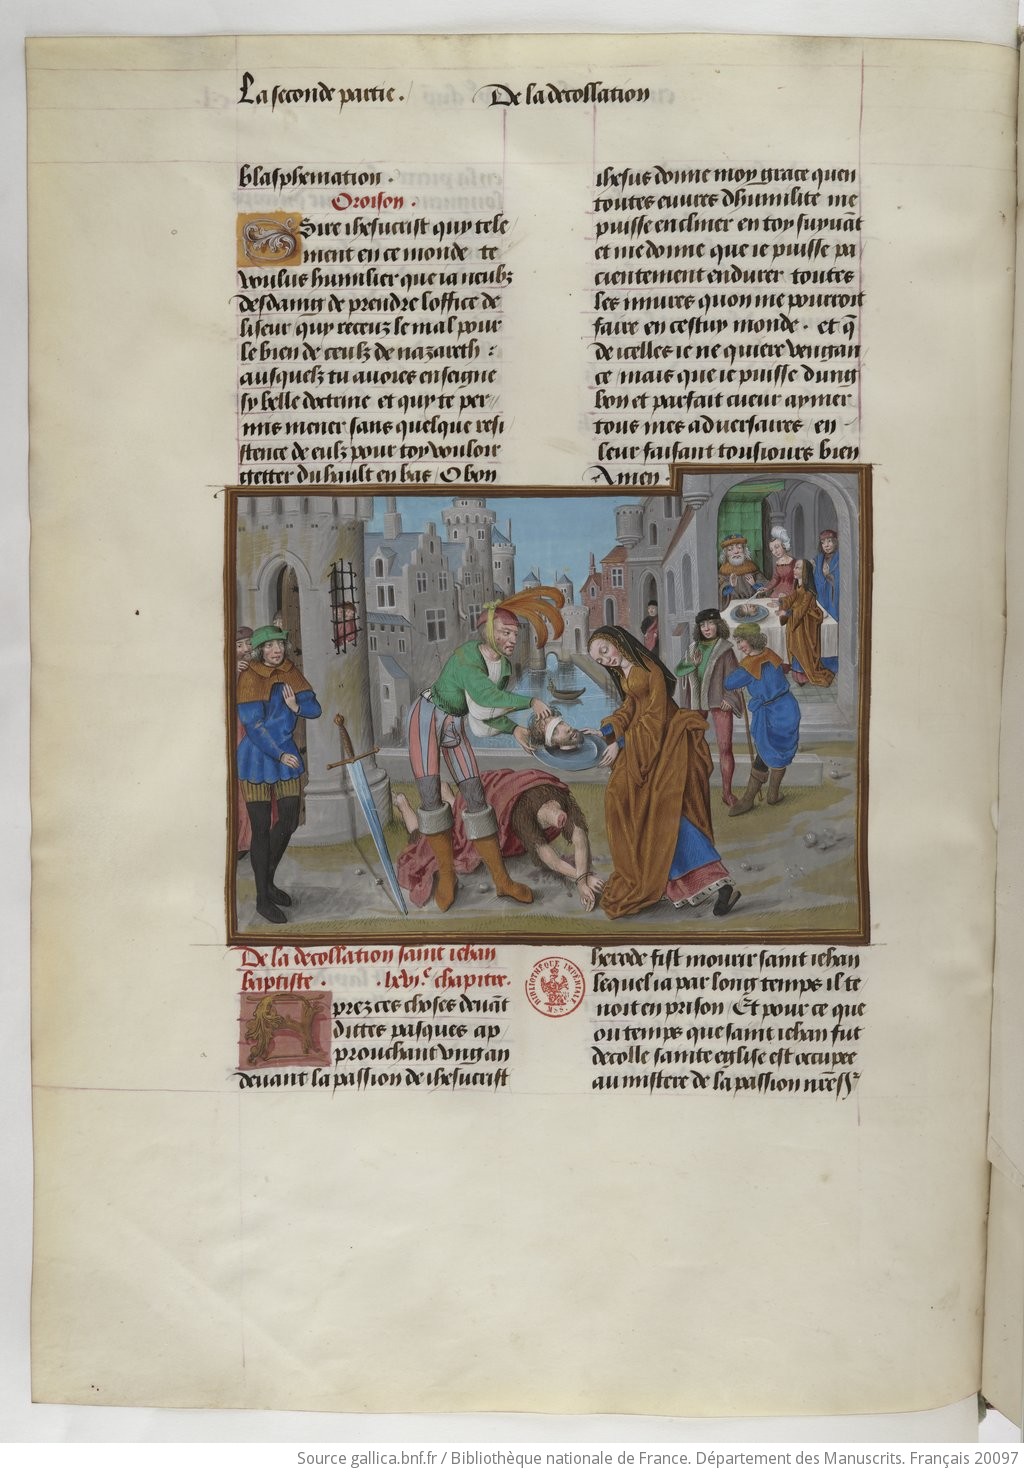 La seconde partie. De la decollation
blasphemation.
Oroison.
Sire ihesucrist quy tele
ment en ce monde te
voulus humilier que ia neubz
desdaing de prendre loffice de
liseur quy receuz le mal pour
le bien de ceulz de nazareth :
ausquelz tu auores enseigne
sy belle doctrine et quy te per
mis mener sans quelque resi
stence de eulz pour toy vouloir
getter du hault en bas / O bon
ihesus donne moy grace quen
toutes euures dhumilite me
puisse encliner en toy suyuāt
et me donne que ie puisse pa
cientement endurer toutes
les iniures quon me pourroit
faire en cestuy monde. et q̄
de icelles ie ne quiere vengan
ce mais que ie puisse dung
bon et parfait cueur aymer
tous mes aduersaires en
leur faisant tousiours bien
Amen.
De la decollation saint iehan
baptiste. lxvj.e chapitre.
Aprez ces choses deuāt
dittes pasques ap
prouchant vng an
deuant la passion de ihesucrist
herode fist mourir saint iehan
lequel ia par long temps il te
noit en prison / Et pour ce que
ou temps que saint iehan fut
decolle sainte eglise est occupee
au mistere de la passion nr̄e sr
BIBLIOTHÈQUE IMPÉRIALE
MSS.
Source gallica.bnf.fr / Bibliothèque nationale de France. Département des Manuscrits. Français 20097